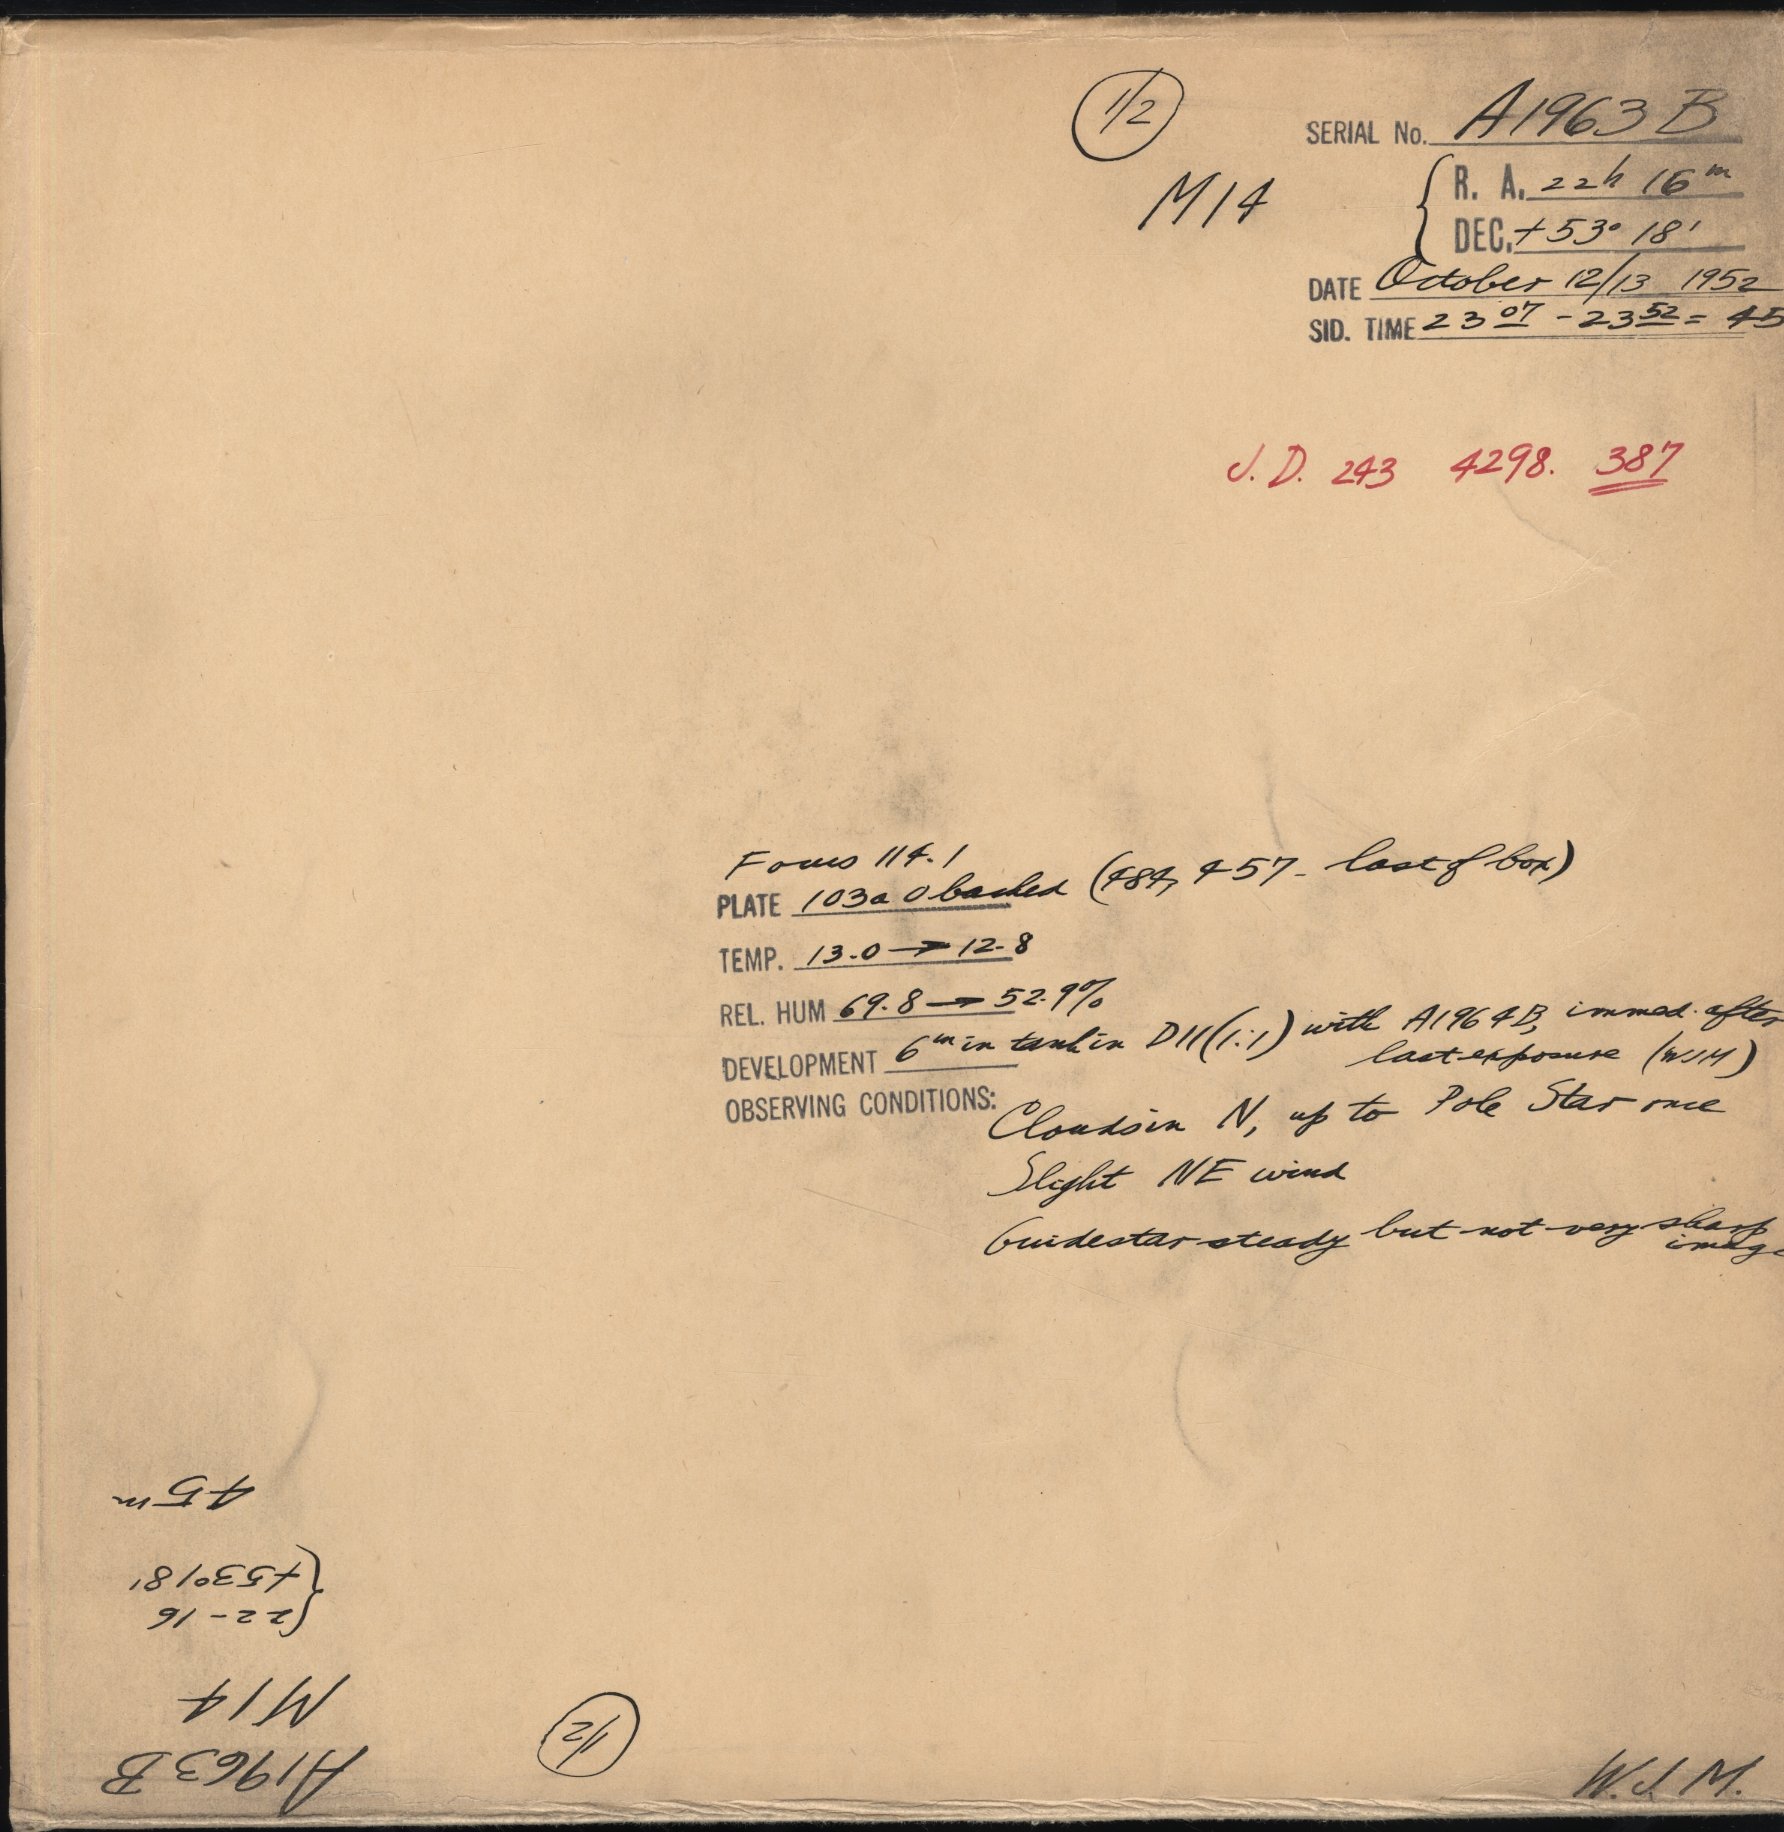 1/2
SERIAL No. A1963 B
M14
R. A. 22h 16m
DEC. +53° 18'
DATE October 12/13 1952
SID. TIME 23 07 - 23 52 = 45
J. D. 243 4298. 387
Focus 114.1
PLATE 103a O backed (484, 457 - last of box)
TEMP. 13.0 → 12.8
REL. HUM 69.8 → 52.9%
DEVELOPMENT 6m in tank in D11 (1:1) with A1964B, immed. after
last exposure (WJM)
OBSERVING CONDITIONS:
Clouds in N, up to Pole Star once
Slight NE wind
Guidestar steady but not very sharp
image
W. J. M.
1/2
A1963B
M14
22-16
+53°18'
45m